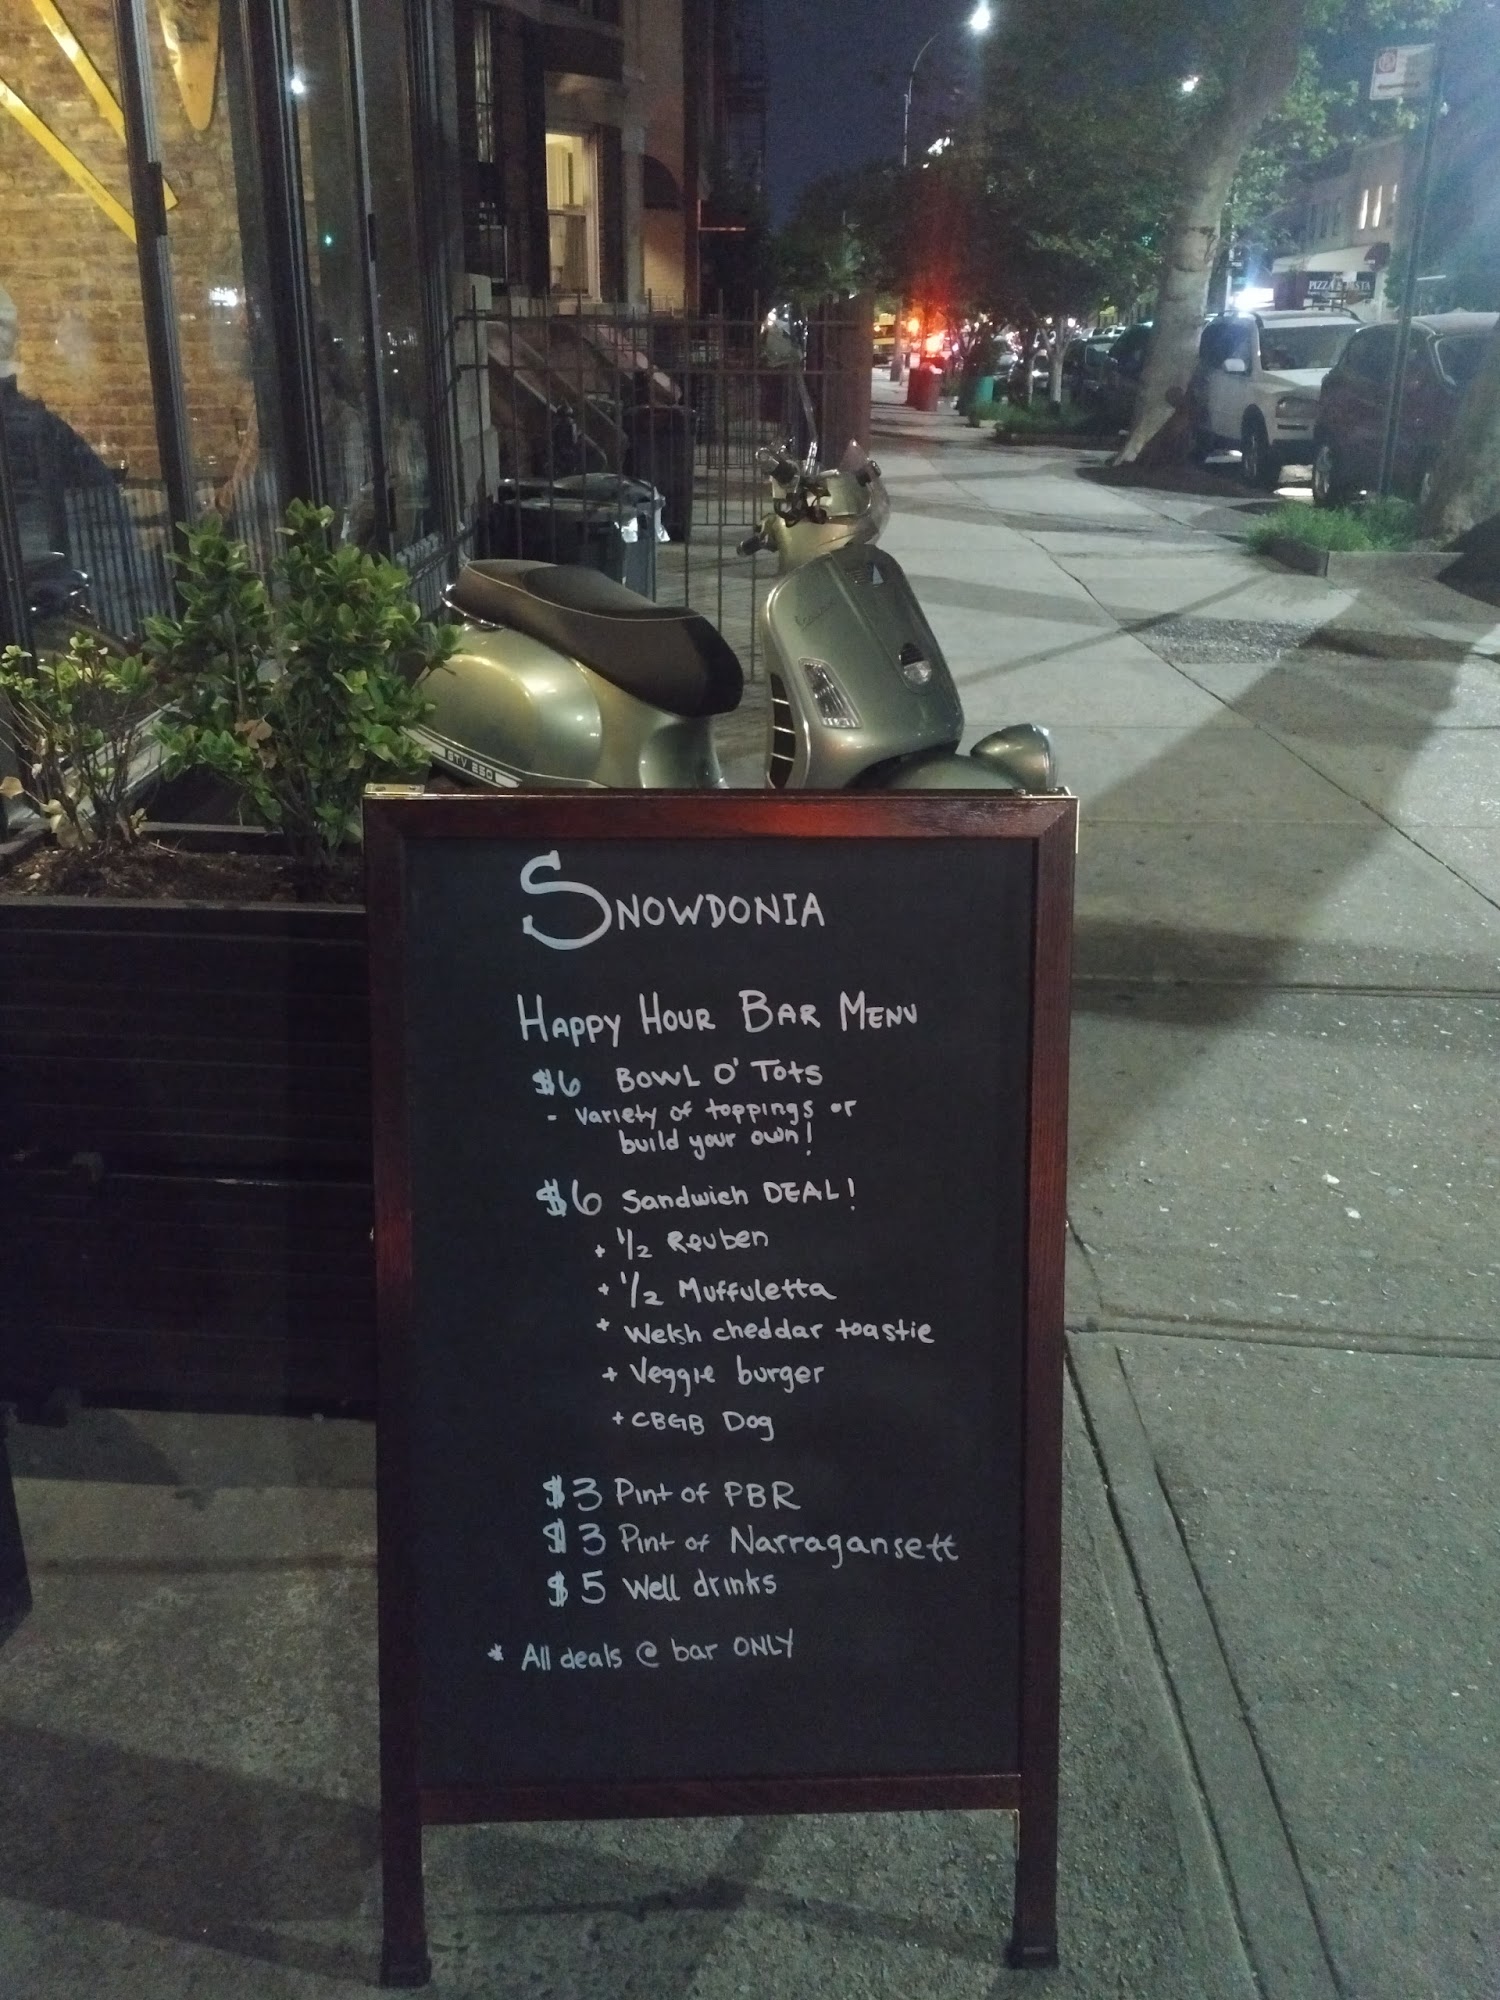 PIZZA & PASTA
GTV 250
SNOWDONIA
HAPPY HOUR BAR MENU
$6 BOWL O' TOTS
- Variety of toppings or
build your own!
$6 Sandwich DEAL!
+ 1/2 Reuben
+ 1/2 Muffuletta
+ Welsh cheddar toastie
+ Veggie burger
+ CBGB Dog
$3 Pint of PBR
$3 Pint of Narragansett
$5 Well drinks
* All deals @ bar ONLY